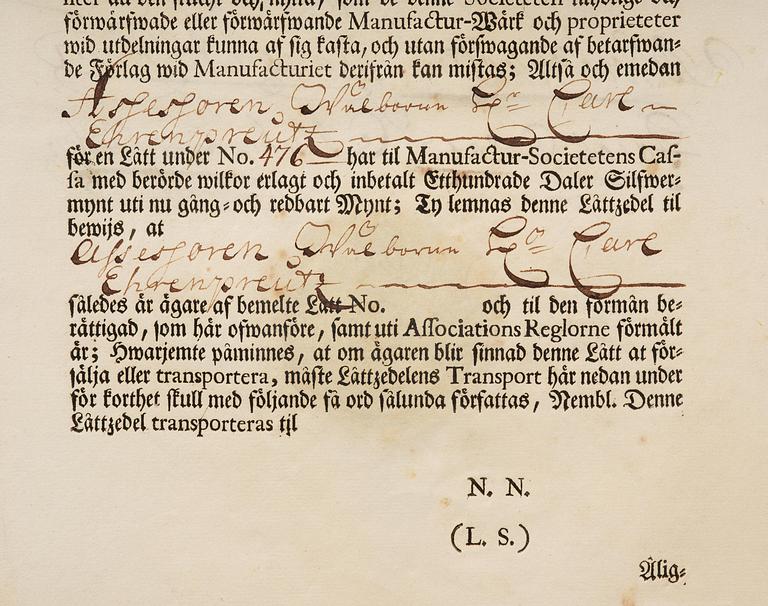 förwärfwade eller förwärfwande Manufactur-Wärk och proprieteter
wid utdelningar kunna af sig kasta, och utan förswagande af betarfwan-
de Förlag wid Manufacturiet derifrån kan mistas; Altså och emedan
Assessoren Wälborne Hr Carl
Ehrenpreutz
för en Lått under No. 476 har til Manufactur-Societetens Cas-
sa med berörde wilkor erlagt och inbetalt Etthundrade Daler Silfwer-
mynt uti nu gång- och redbart Mynt; Ty lemnas denne Låttzedel til
bewijs, at
Assessoren Wälborne Hr Carl
Ehrenpreutz
således är ägare af bemelte Lått No. och til den förmån be-
rättigad, som här ofwanföre, samt uti Associations Reglorne förmält
är; Hwarjemte påminnes, at om ägaren blir sinnad denne Lått at för-
sälja eller transportera, måste Låttzedelens Transport här nedan under
för korthet skull med följande få ord sålunda författas, Nembl. Denne
Låttzedel transporteras til
N. N.
(L. S.)
Älig-